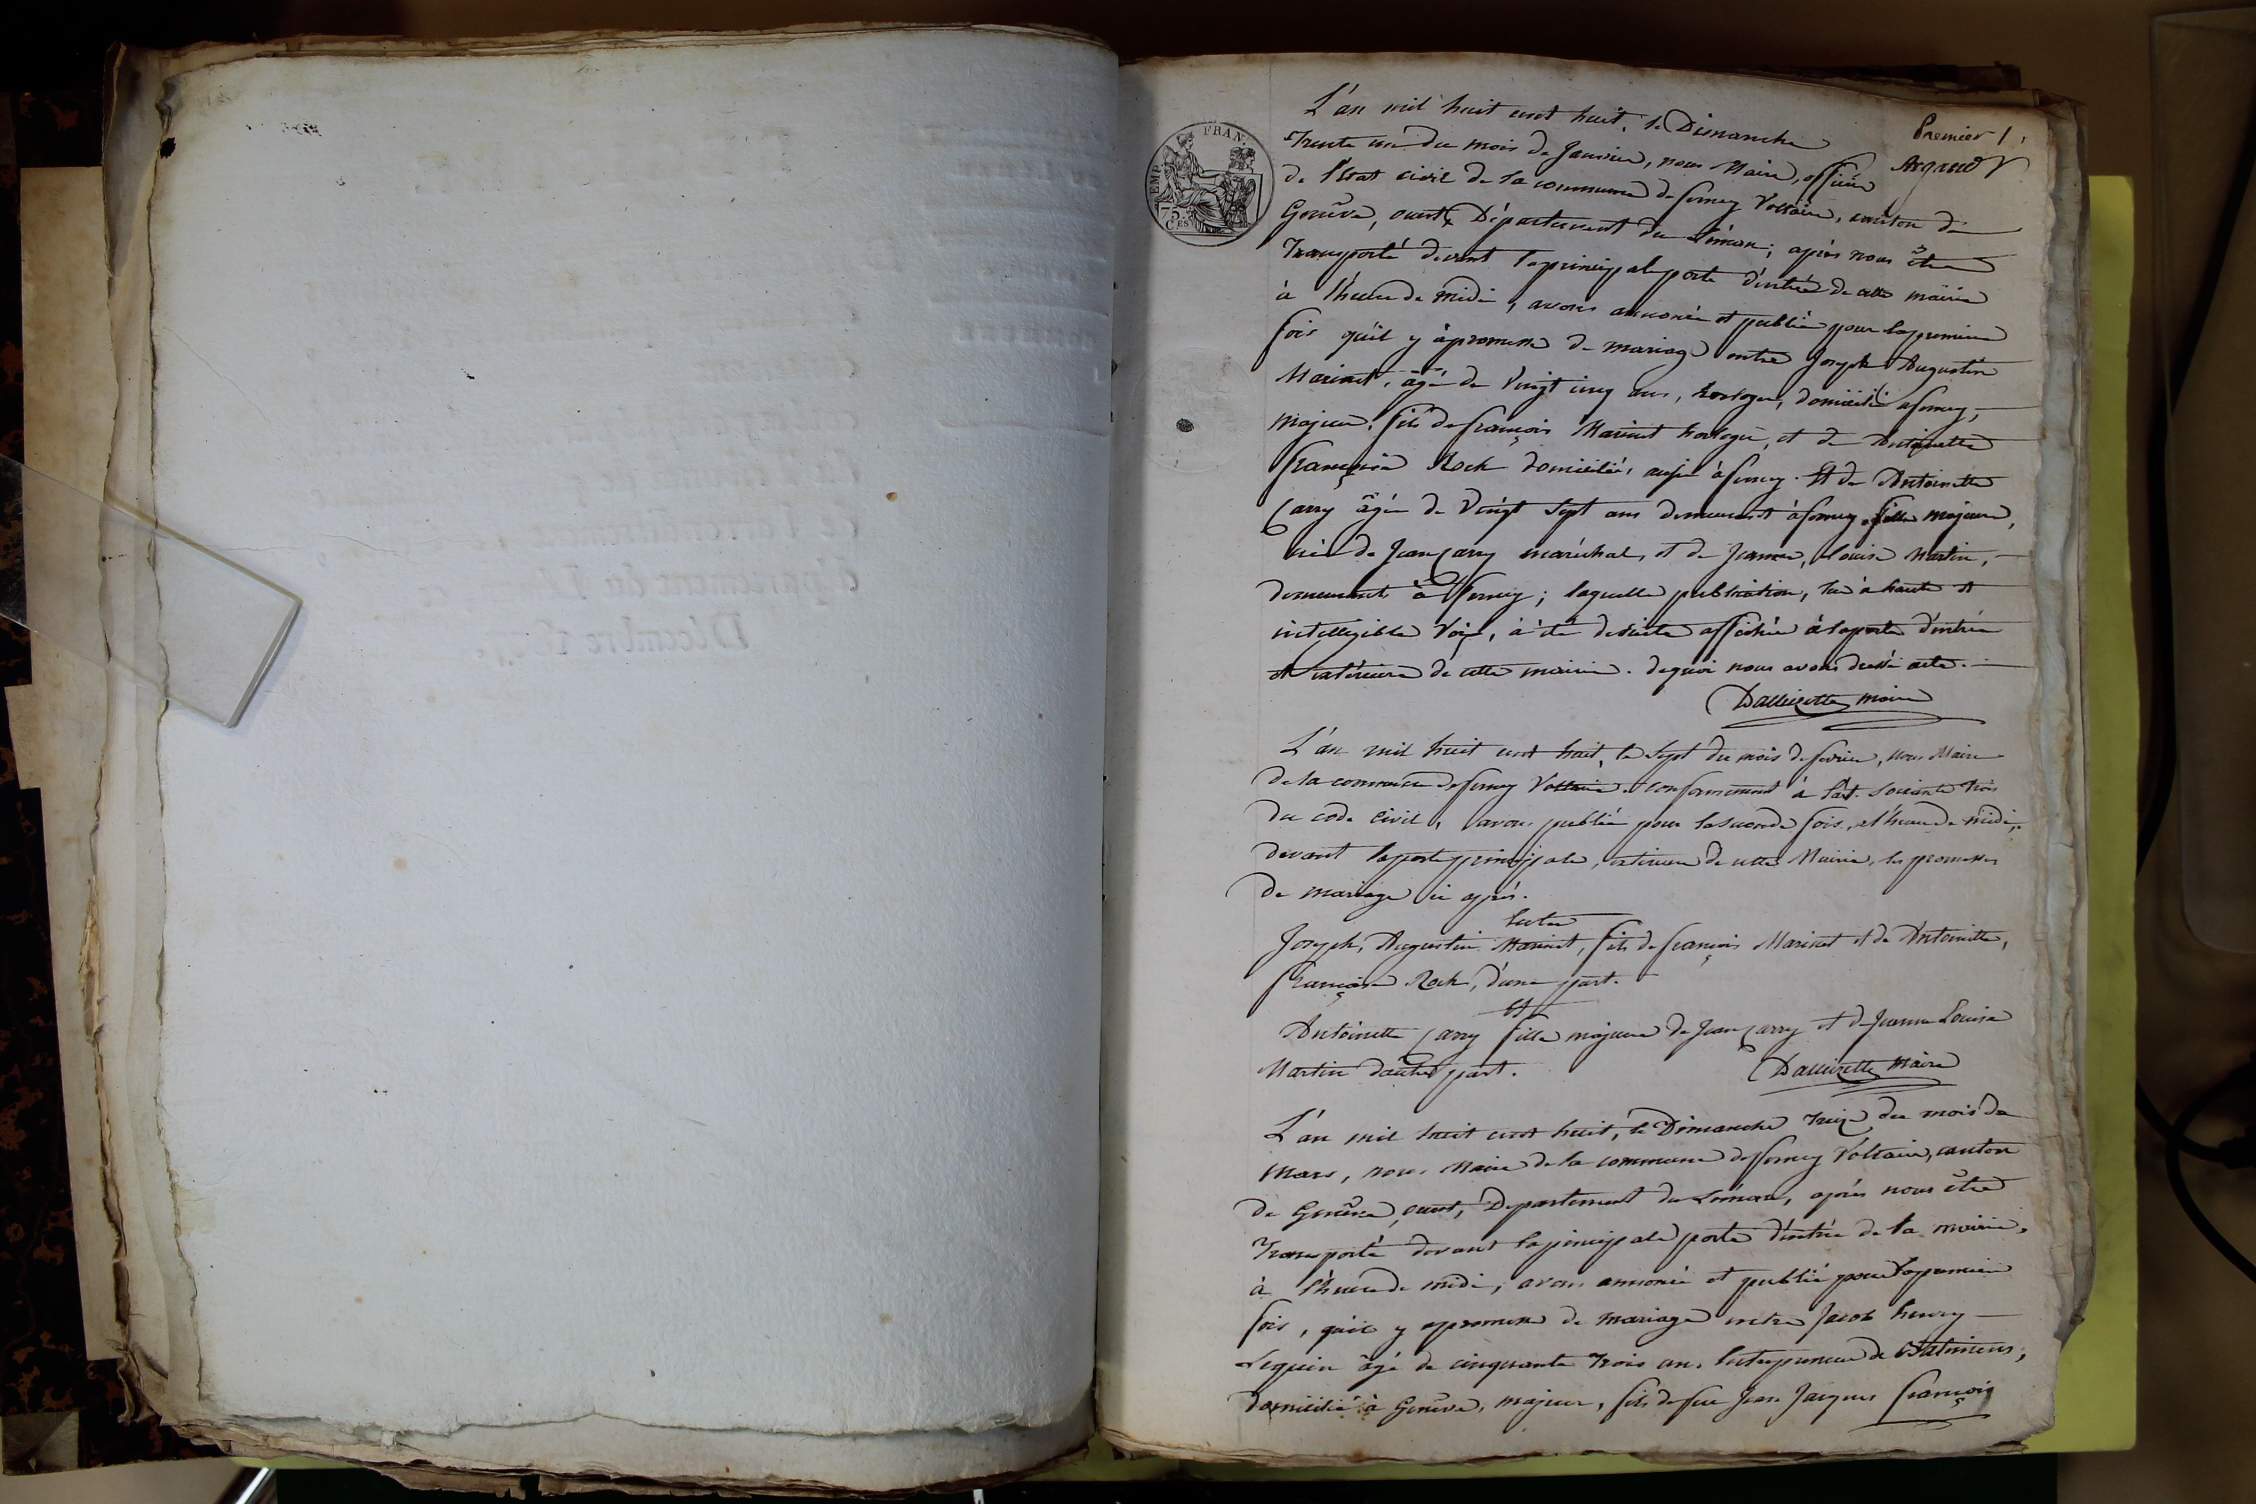 Premier 1.
Argand
EMP. FRAN.
75.
CES
L'an mil huit cent huit, le Dimanche
Trente un du mois de Janvier, nous Maire, officier
de l'état civil de la commune de ferney Voltaire, canton de
Genêve, ouest, Département du Léman; après nous être
Transporté devant la principale porte d'entrée de cette mairie
à l'heure de midi, avons annoncé et publié pour la premiere
fois qu'il y à promesse de mariage entre Joseph Augustin
Marinet, âgé de Vingt cinq ans, horloger, domicilié a ferney,
majeur, fils de françois Marinet horloger, et de Antoinette
françoise Rock domiciliés aussi à ferney. Et de Antoinette
Carry âgée de Vingt Sept ans demeurant à ferney, fille majeure,
née de Jean Carry maréchal, et de Jeanne, Louise Martin,
demeurants à ferney; laquelle publication, lue à haute et
intelligible Voix, à été desuite affichée à la porte d'entrée
et extérieure de cette mairie. de quoi nous avons dressé acte.
Dallizette maire
L'an mil huit cent huit, le Sept du mois de fevrier, nous Maire
de la commune de ferney Voltaire, conformement à l'art. soixante trois
du code Civil, avons publié pour la seconde fois, à l'heure de midi,
devant la porte principale, exterieure de cette Mairie, les promesses
de mariage ci après.
Entre
Joseph, Augustin Marinet, fils de françois Marinet et de Antoinette,
françoise Rock, d'une part.
Et
Antoinette Carry fille majeure de Jean Carry et de Jeanne Louise
Martin d'autre part.
Dallizette Maire
L'an mil huit cent huit, le Dimanche Treize du mois de
Mars, nous Maire de la commune de ferney Voltaire, canton
de Genêve, ouest, Departement du Léman, après nous être
Transporté devant la principale porte d'entrée de la mairie,
à l'heure de midi, avons annoncé et publié pour la premiere
fois, qu'il y a promesse de mariage entre Jacob henry
Sequin âgé de cinquante Trois ans, Entrepreneur de Batimens,
domicilié à Genêve, majeur, fils de feu Jean Jacques françois